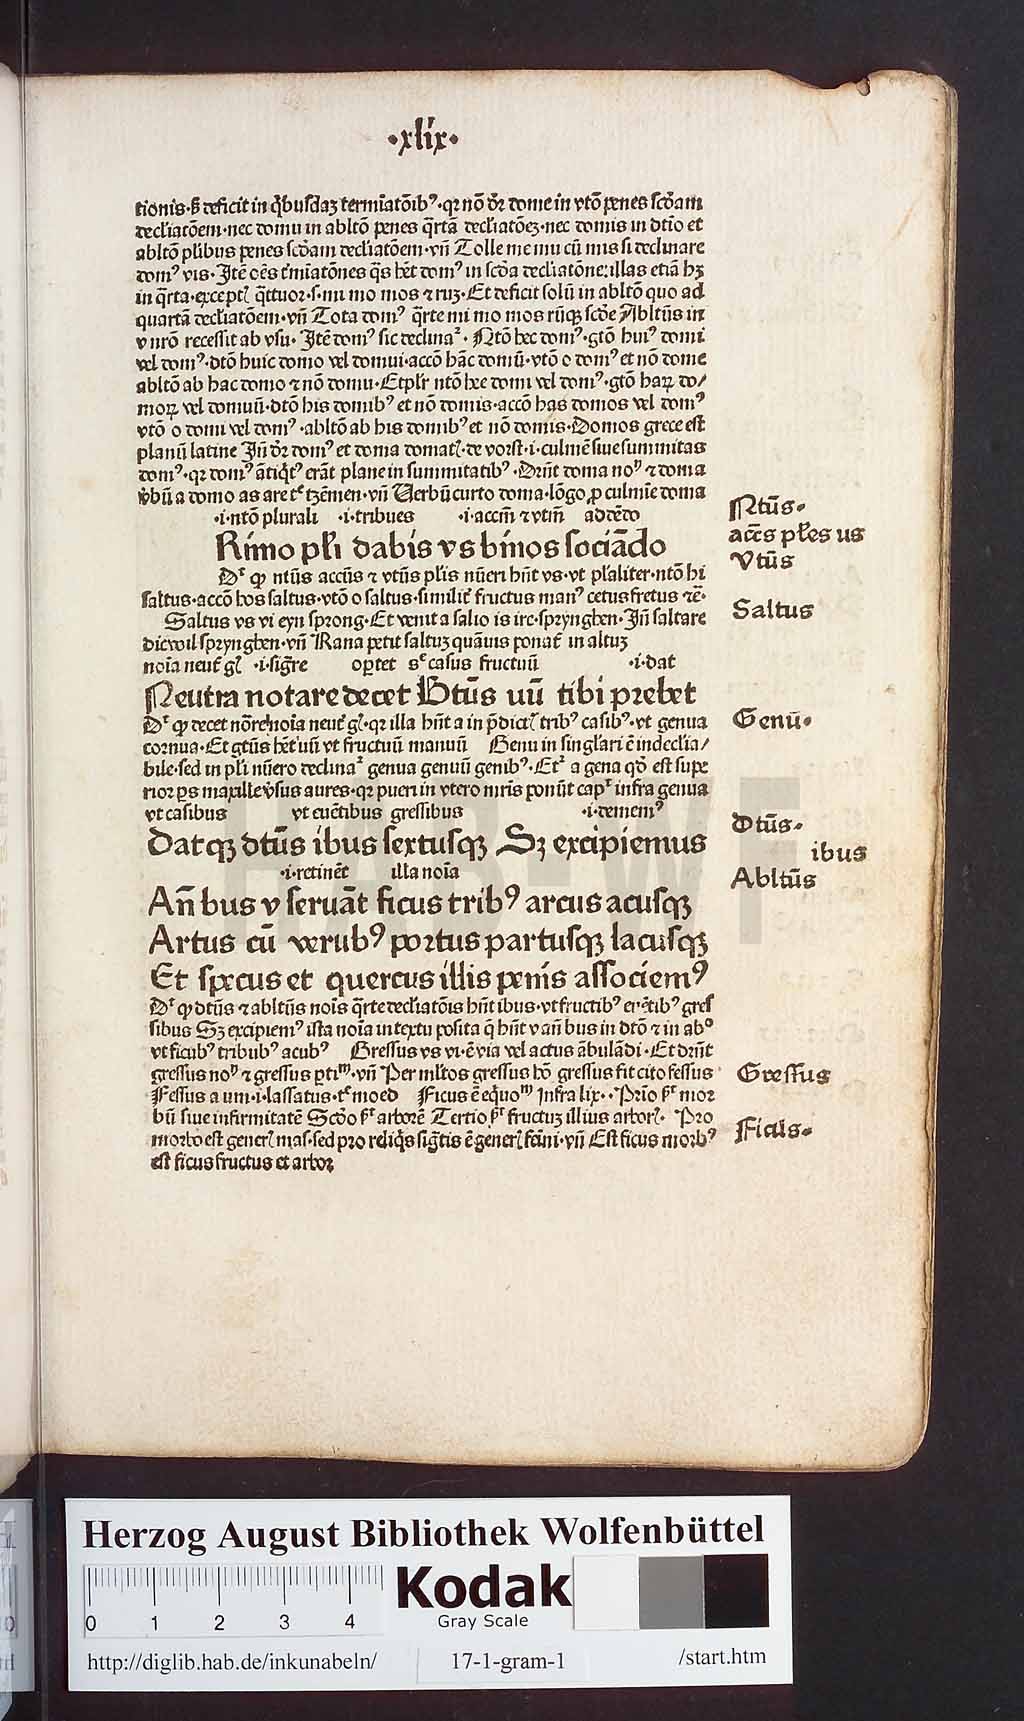 ·xlix·
tionis·sꝫ deficit in q̄busdaꝫ termīatōibꝰ·qꝛ nō dr̄ dome in vtō penes scd̄am
declīatōem·nec domu in abltō penes q̄rtā declīatōeꝫ·nec domis in dtīo et
abltō pl̄ibus penes scd̄am declīatōem·vn̄ Tolle me mu cū mis si declinare
domꝰ vis·Itē oēs tm̄īatōnes q̄s hēt domꝰ in scd̄a declīatōne; illas etiā hꝫ
in q̄rta·exceptꝭ q̄ttuor·s·mi mo mos ⁊ ruꝫ·Et deficit solū in abltō quo ad
quartā declīatōem·vn̄ Tota domꝰ q̄rte mi mo mos rūqꝫ scd̄e Abltūs in
v nr̄o recessit ab vsu·Itē domꝰ sic declina·Ntō hec domꝰ·gtō huiꝰ domi
vel domꝰ·dtō huic domo vel domui·accō hāc domū·vtō o domꝰ et nō dome
abltō ab hac domo ⁊ nō domu·Et pl̄r ntō hee domi vel domꝰ·gtō haꝝ do/
moꝝ vel domuū·dtō his domibꝰ et nō domis·accō has domos vel domꝰ
vtō o domi vel domꝰ·abltō ab his domibꝰ et nō domis·Domos grece est
planū latine Jn̄ dr̄ domꝰ et doma domatꝭ·de vorst·i·culmē siue summitas
domꝰ·qꝛ domꝰ ātiq̄tꝰ erāt plane in summitatibꝰ·Dn̄t doma noꝰ ⁊ doma
v̄bū a domo as are tꝭ tzēmen·vn̄ Uerbū curto doma·lōgo ꝓ culmīe doma
·i·ntō plurali ·i·tribues ·i·accm̄ ⁊ vtm̄ ad dēdo
Rimo pl̄i dabis vs binos sociādo
Dꝛ ꝙ ntūs accūs ⁊ vtūs pl̄is nūeri hn̄t vs·vt pl̄aliter·ntō hi
saltus·accō hos saltus·vtō o saltus·similit̄ fructus manꝰ cetus fretus ⁊c̄·
Saltus vs vi eyn sprong·Et venit a salio is ire·spryngben·Jn̄ saltare
dicwil spryngben·vn̄ Rana petit saltuꝫ quāuis ponat̄ in altuꝫ
noīa neut̄ gꝭ ·i·sig̅re oꝑtet sꝭ casus fructuū ·i·dat
Neutra notare decet Gtūs uū tibi prebet
Dꝛ ꝙ decet nōre noīa neut̄ gꝭ·qꝛ illa hn̄t a in p̄dictꝭ tribꝰ casibꝰ·vt genua
cornua·Et gtūs hēt uū vt fructuū manuū Genu in singl̄ari ē indeclīa/
bile·sed in pl̄i nūero declina genua genuū genibꝰ·Et a gena qd̄ est supe
rior ꝑs maxille v̄sus aures·qꝛ pueri in vtero mr̄is ponūt cap infra genua
vt casibus vt euētibus gressibus ·i·dememꝰ
Datqꝫ dtūs ibus sextusqꝫ Sꝫ excipiemus
·i·retinēt illa noīa
An̄ bus v seruāt ficus tribꝰ arcus acusqꝫ
Artus cū verubꝰ portus partusqꝫ lacusqꝫ
Et specus et quercus illis penis associemꝰ
Dꝛ ꝙ dtūs ⁊ abltūs nois q̄rte declīatōis hn̄t ibus·vt fructibꝰ euētibꝰ gres
sibus Sꝫ excipiemꝰ ista noīa in textu posita q̄ hn̄t v an̄ bus in dtō ⁊ in abo
vt ficubꝰ tribubꝰ acubꝰ Gressus vs vi·ē via vel actus ābulādi·Et drn̄t
gressus noꝰ ⁊ gressus ꝑtim·vn̄ Per ml̄tos gressus hō gressus fit cito fessus
Fessus a um·i·lassatus·tꝭ moed Ficus ē eq̄uom Infra lix··Pr̄io sꝛ mor
bū siue infirmitatē Scd̄o sꝛ arborē Tertio sꝛ fructuꝫ illius arborꝭ· Pro
morbo est generꝭ mas·sed pro reliq̄s sig̅tis ē generꝭ fēini·vn̄ Est ficus morbꝰ
est ficus fructus et arbor
Ntūs·
accūs pl̄es us
Vtūs
Saltus
Genū·
Dtūs·
ibus
Abltūs
Gressus
Ficus·
Herzog August Bibliothek Wolfenbüttel
0 1 2 3 4
Kodak
Gray Scale
http://diglib.hab.de/inkunabeln/ 17-1-gram-1 /start.htm
HAB-WF